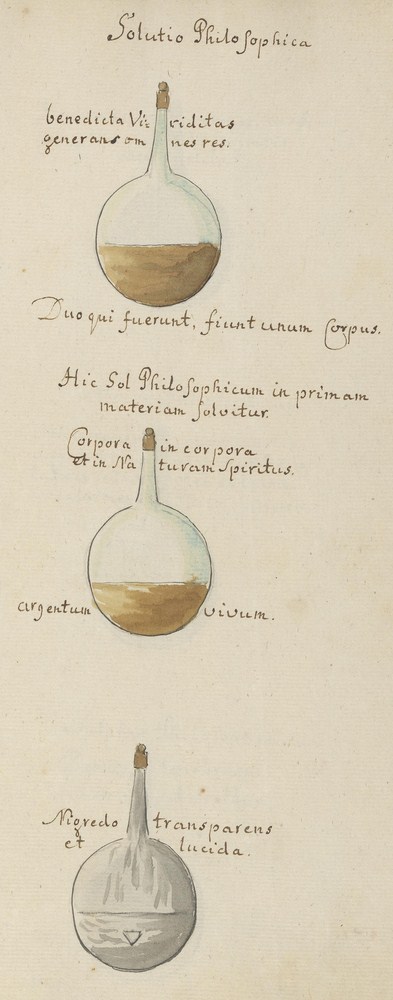 Solutio Philosophica
benedicta Vi= riditas
generans om nes res.
Duo qui fuerunt, fiunt unum Corpus.
Hic Sol Philosophicum in primam
materiam solvitur.
Corpora in corpora
et in Na turam Spiritus.
argentum vivum.
Nigredo transparens
et lucida.